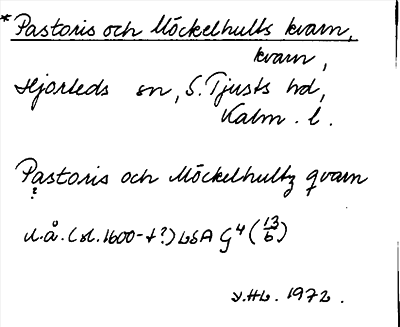 *Pastoris och Möckelhults kvarn,
kvarn,
Hjorteds sn, S. Tjusts hd,
Kalm. l.
Pastoris och Möckelhultz qvarn
?
u.å. (sl. 1600-t?) LSA G4 (13/b)
1972.